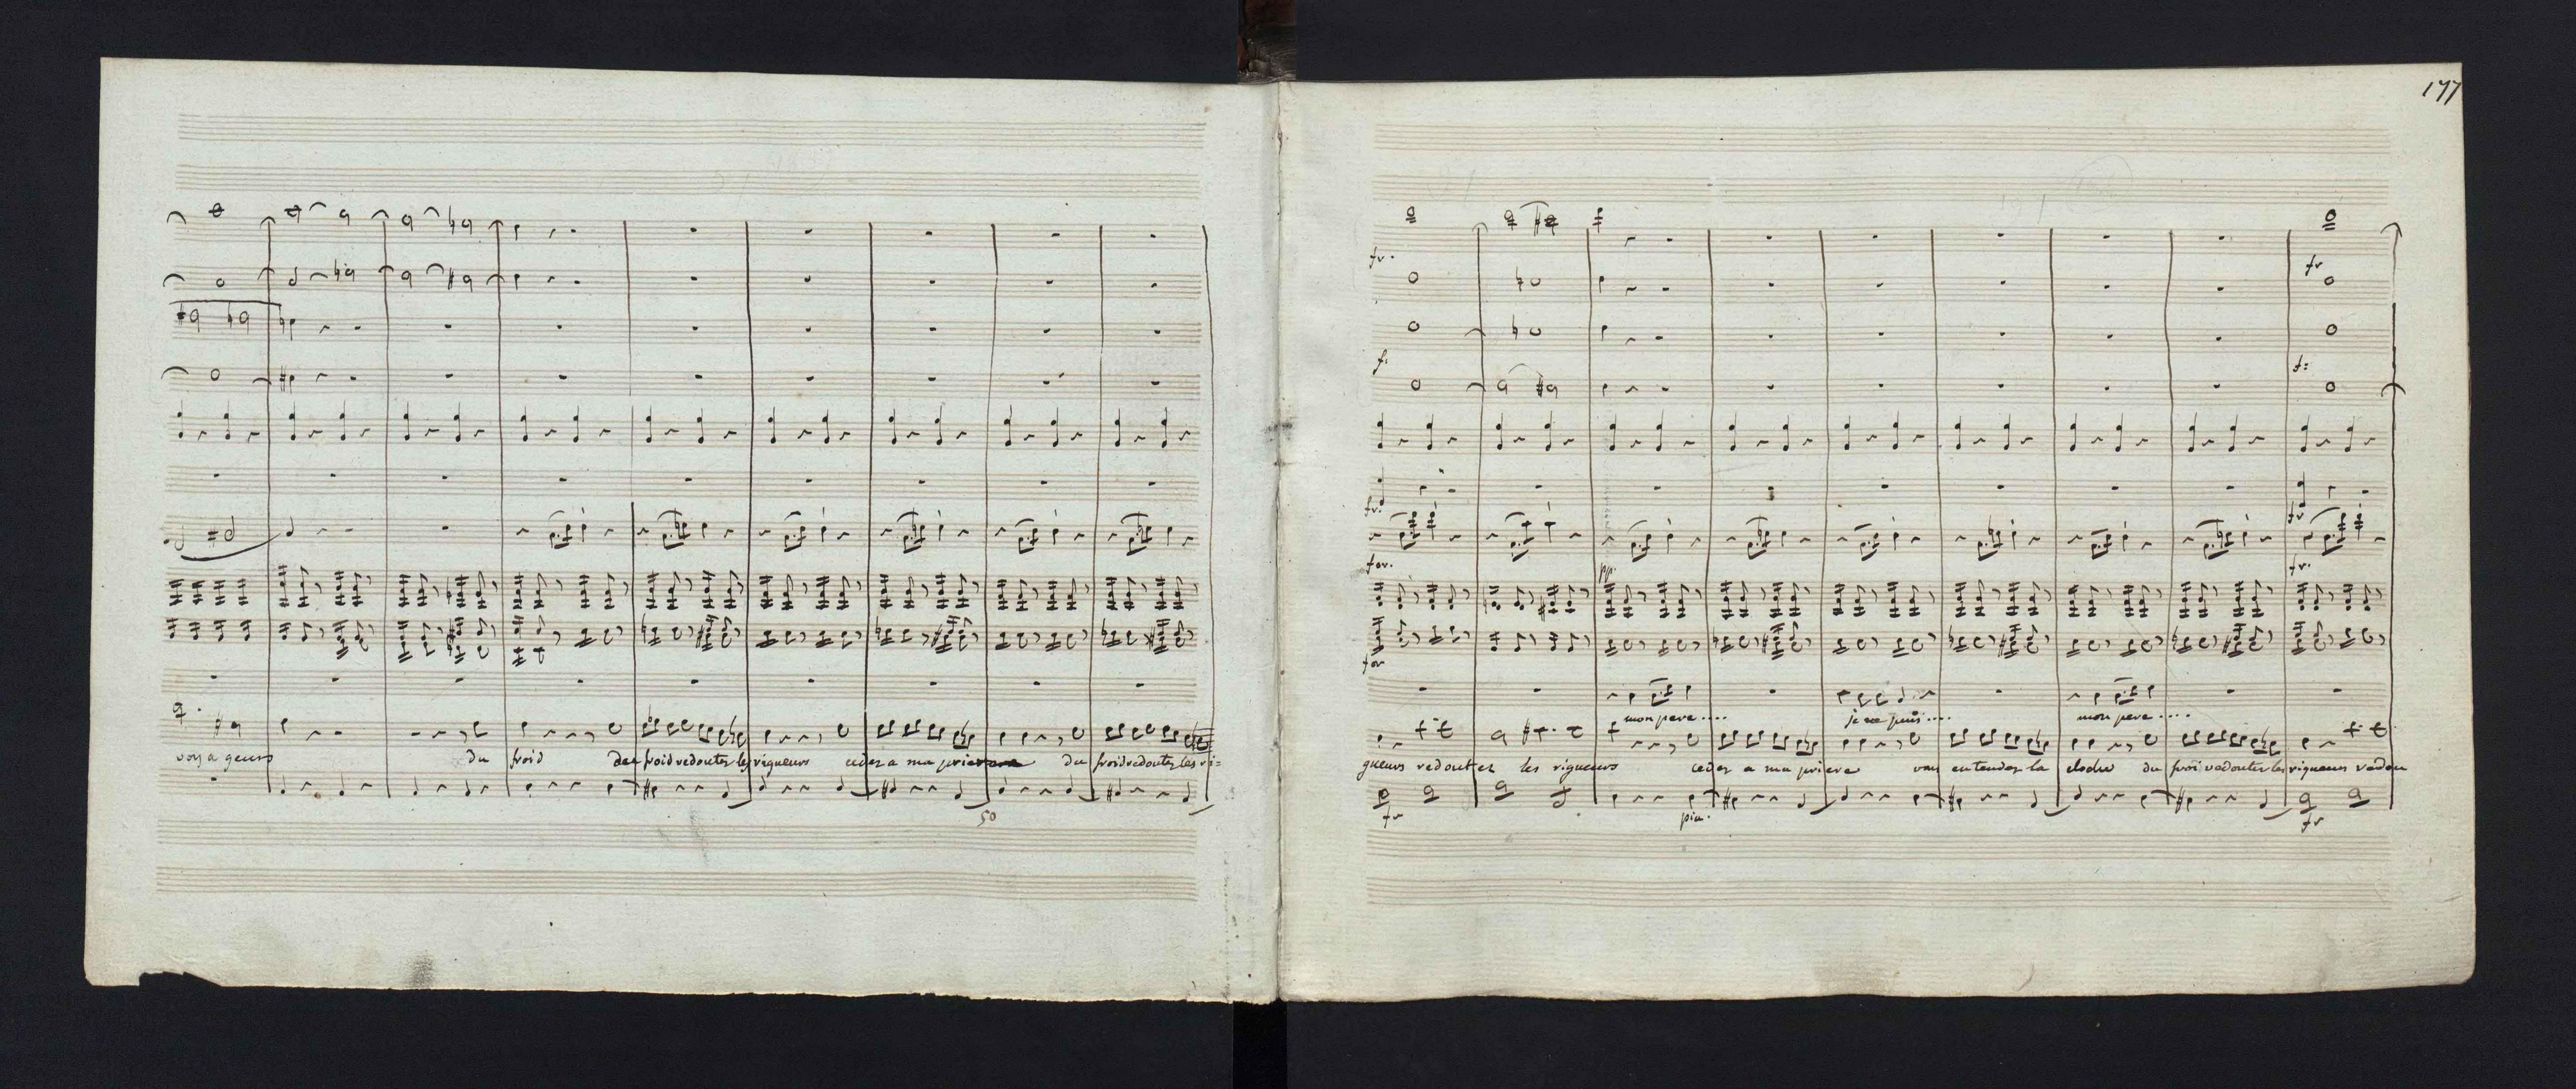 voyageurs du froid du froid redoutez les rigueurs cedez a ma priere du froid redoutez les ri=
50
177
fr.
fr
f:
f:
fr.
fr
for.
pp.
fr.
for
mon pere.... je ne puis.... mon pere....
gueurs redoutez les rigueurs cedez a ma priere vous entendez la cloche du froid redoutez les rigueurs redou
fr pia. fr